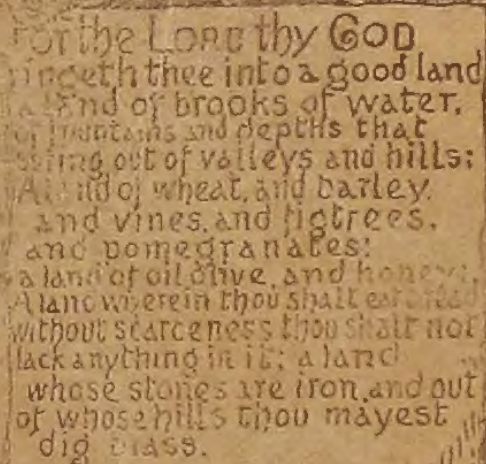 For the LORD thy GOD
bringeth thee into a good land
a land of brooks of water,
of fountains and depths that
spring out of valleys and hills;
A land of wheat, and barley,
and vines, and figtrees,
and pomegranates;
a land of oil olive, and honey;
A land wherein thou shalt eat bread
without scarceness thou shalt not
lack anything in it; a land
whose stones are iron, and out
of whose hills thou mayest
dig brass.